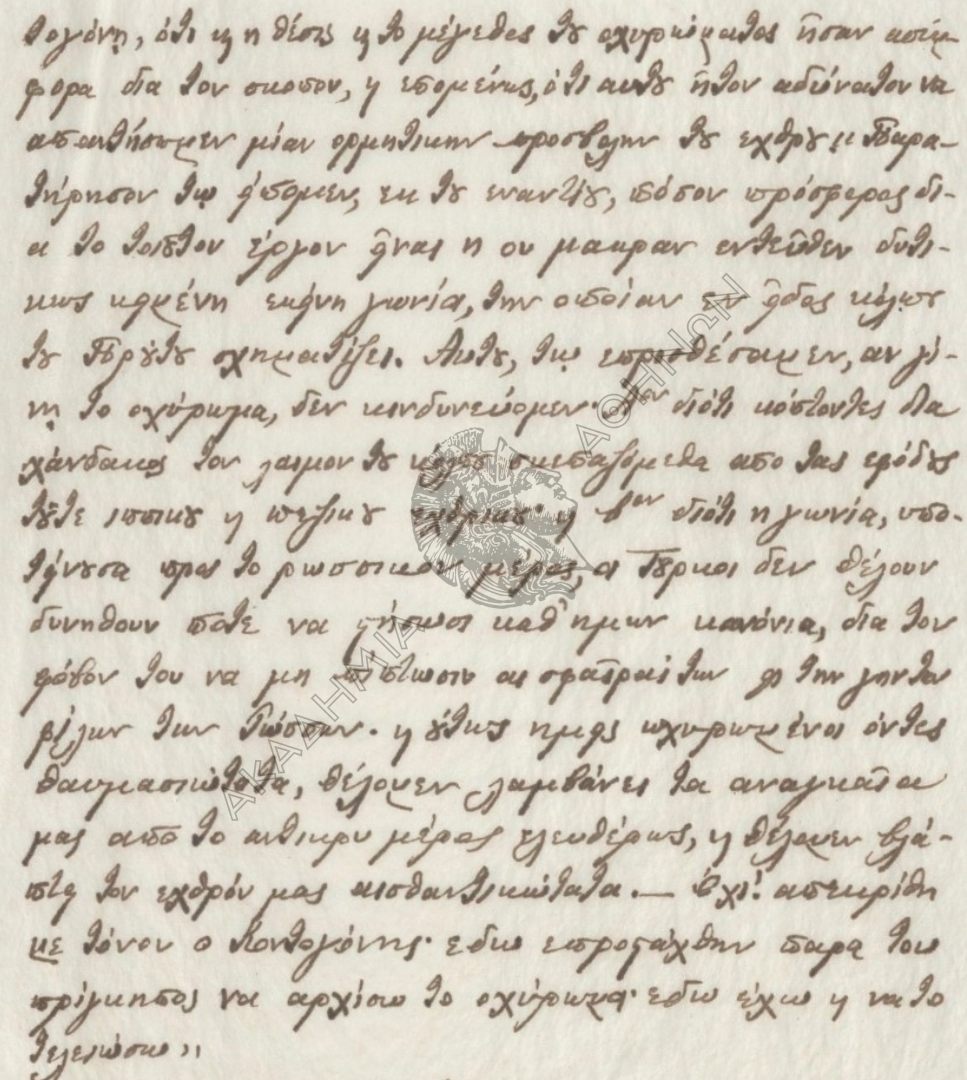 τογόνη, ότι και η θέσις και το μέγεθος του οχυρώματος ήσαν ασύμ-
φορα δια τον σκοπον, και επομένως, ότι αυτού ήτον αδύνατον να
απαντήσωμεν μίαν ορμητικην προσβολην του εχθρού. Παρα-
τήρησον τω είπομεν, εκ του εναντίου, πόσον πρόσφερος δι-
α το τοιούτον έργον είναι η ου μακραν εντεύθεν δυτι-
κως κειμένη εκείνη γωνία, την οποίαν εν είδος κόλπου
του Προύτου σχηματίζει. Αυτού, τω επροσθέσαμεν, αν γί-
νη το οχύρωμα, δεν κινδυνεύομεν· αον διότι κόπτοντες δια
χάνδακος τον λαιμον του κόλπου σκεπαζόμεθα απο τας εφόδους
τούτε ιππικου και πεζικου εχθρικου· και βον διότι η γωνία, υπο-
τείνουσα προς το ρωσσικον μέρος, οι Τούρκοι δεν θέλουν
δυνηθουν ποτε να στήσωσι καθ' ημων κανόνια, δια τον
φόβον του να μη πίπτωσιν αι σφαίραι των εις την γην των
φίλων των Ρώσσων. και ούτως ημείς ωχυρωμένοι όντες
θαυμασιώτατα, θέλομεν λαμβάνει τα αναγκαία
μας από το αντικρυ μέρος ελευθέρως, και θέλομεν βλά-
πτει τον εχθρόν μας αισθαντικώτατα. — Όχι! απεκρίθη
με τόνον ο Κοντογόνης· εδω επροστάχθην παρα του
πρίγκηπος να αρχίσω το οχύρωμα· εδω έχω και να το
τελειώσω „